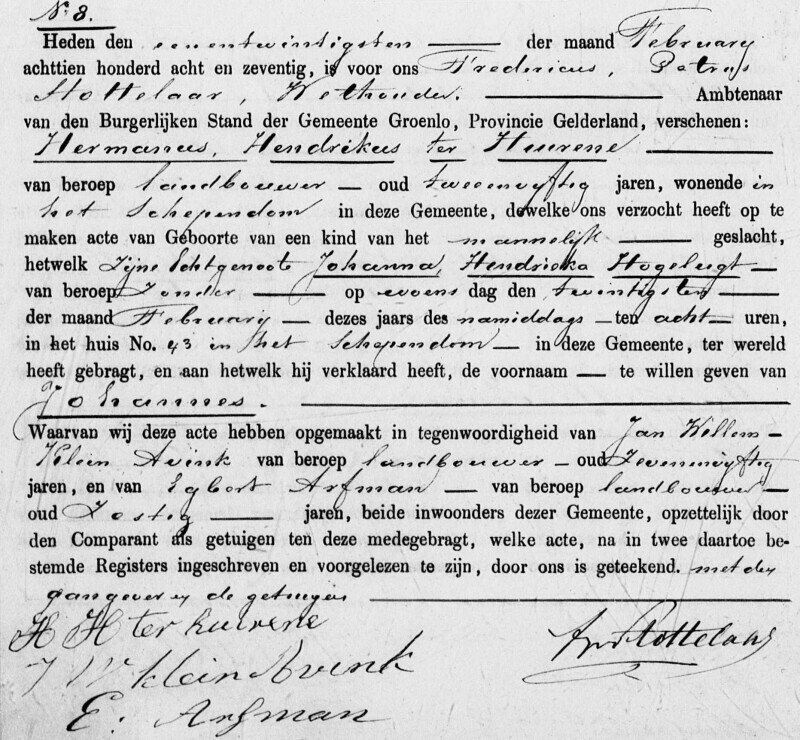 No. 8.
Heden den eenentwintigsten der maand February
achttien honderd acht en zeventig, is voor ons Fredericus, Petrus
Stottelaar, Wethouder. Ambtenaar
van den Burgerlijken Stand der Gemeente Groenlo, Provincie Gelderland, verschenen:
Hermanus, Hendrikus ter Huurene
van beroep landbouwer oud tweeenvyftig jaren, wonende in
het Schependom in deze Gemeente, dewelke ons verzocht heeft op te
maken acte van Geboorte van een kind van het mannelijk geslacht,
hetwelk Zijne Echtgenoote Johanna, Hendrieka Hogelugt
van beroep Zonder op woens dag den twintigsten
der maand February dezes jaars des namiddags ten acht uren,
in het huis No. 43 in het Schependom in deze Gemeente, ter wereld
heeft gebragt, en aan hetwelk hij verklaard heeft, de voornaam te willen geven van
Johannes.
Waarvan wij deze acte hebben opgemaakt in tegenwoordigheid van Jan Willem
Klein Avink van beroep landbouwer oud Zevenenvyftig
jaren, en van Egbert Arfman van beroep landbouwer
oud Zestig jaren, beide inwoonders dezer Gemeente, opzettelijk door
den Comparant als getuigen ten deze medegebragt, welke acte, na in twee daartoe be-
stemde Registers ingeschreven en voorgelezen te zijn, door ons is geteekend. met den
aangever en de getuigen
H H ter huurene
J W klein Avink
E. Arfman
Stottelaar